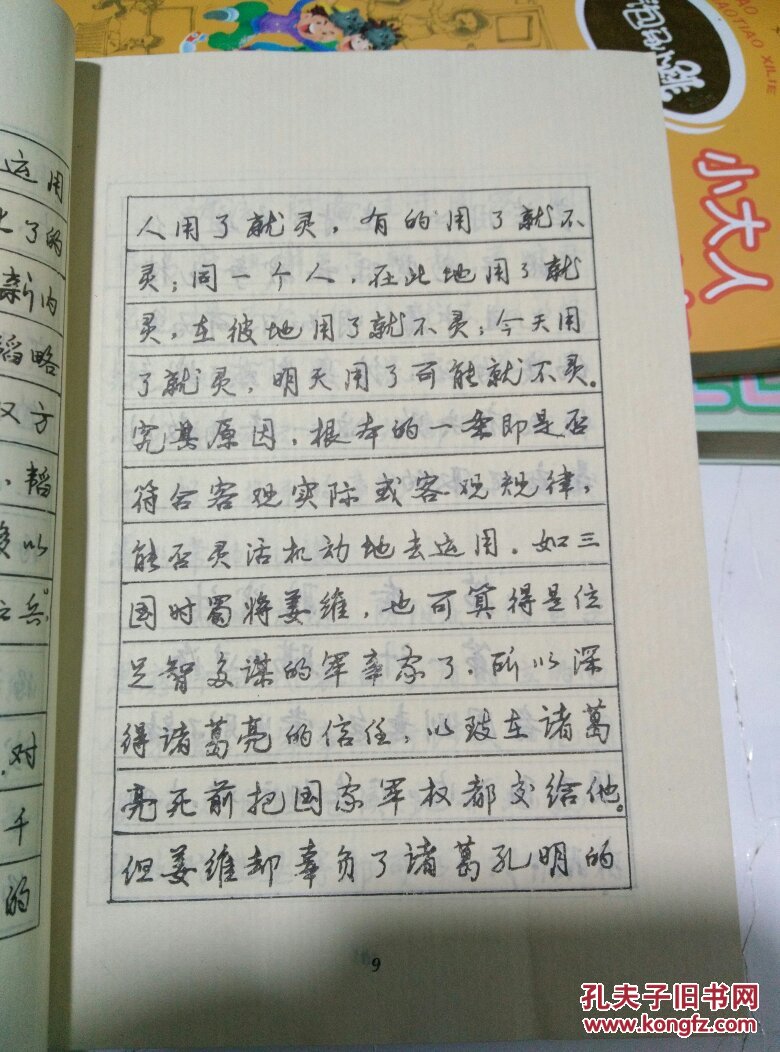 运用
了的
新内
韬略
又方
、韬
以
兵。
.对
千
的
人用了就灵，有的用了就不
灵；同一个人，在此地用了就
灵，在彼地用了就不灵；今天用
了就灵，明天用了可能就不灵。
究其原因，根本的一条即是否
符合客观实际或客观规律，
能否灵活机动地去运用。如三
国时蜀将姜维，也可算得是位
足智多谋的军事家了，所以深
得诸葛亮的信任，以致在诸葛
亮死前把国家军权都交给他。
但姜维却辜负了诸葛孔明的
9
小跳
AOTIAO XILIE
小大人
孔夫子旧书网
www.kongfz.com